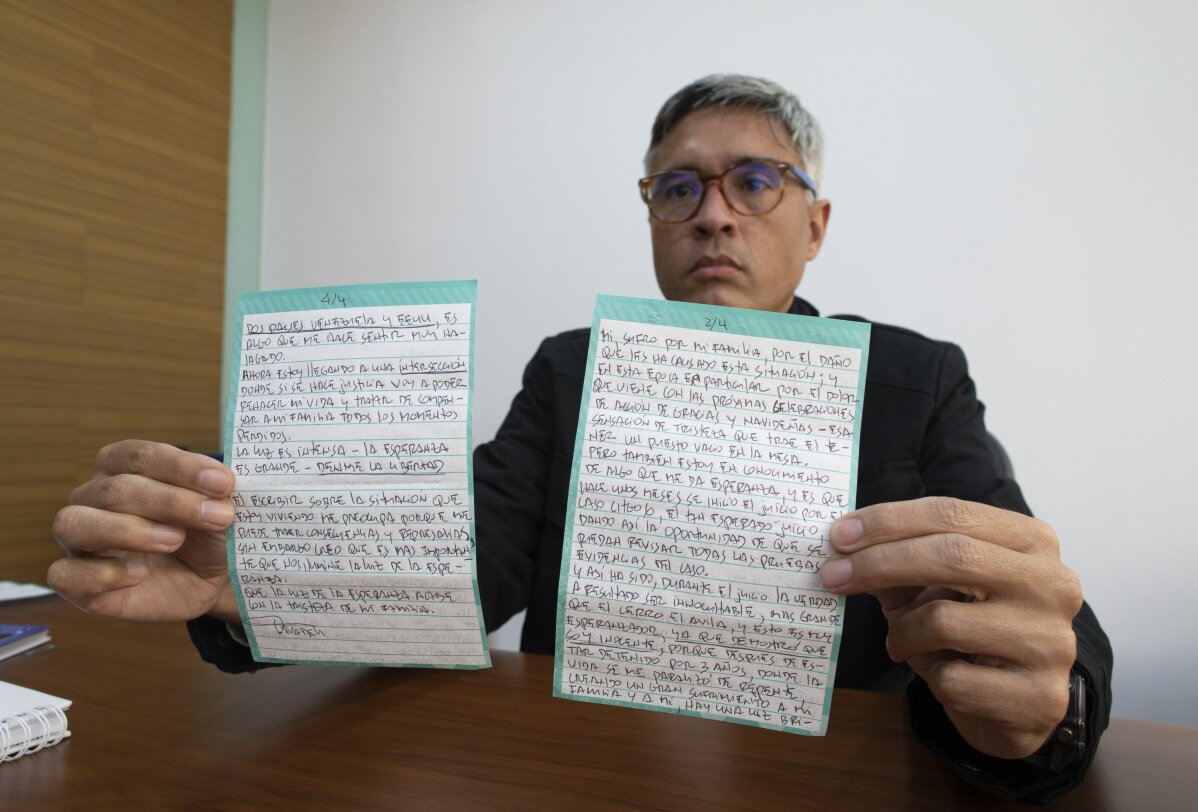 4/4
DOS PAISES VENEZUELA Y EEUU, ES
ALGO QUE ME HACE SENTIR MUY HA-
LAGADO.
AHORA ESTOY LLEGANDO A UNA INTERSECCIÓN
DONDE SI SE HACE JUSTICIA VOY A PODER
REHACER MI VIDA Y TRATAR DE COMPEN-
SAR A MI FAMILIA TODOS LOS MOMENTOS
PERDIDOS.
LA LUZ ES INTENSA - LA ESPERANZA
ES GRANDE - DENME LA LIBERTAD
ESCRIBIR SOBRE LA SITUACIÓN QUE
ESTOY VIVIENDO ME PREOCUPA PORQUE ME
PUEDE TRAER CONSECUENCIAS Y REPRESALIAS,
SIN EMBARGO CREO QUE ES MAS IMPORTAN-
TE QUE NOS ILUMINE LA LUZ DE LA ESPE-
RANZA.
QUE LA LUZ DE LA ESPERANZA ACABE
CON LA TRISTEZA DE MI FAMILIA.
2/4
MI, SUFRO POR MI FAMILIA, POR EL DAÑO
QUE LES HA CAUSADO ESTA SITUACIÓN, Y
EN ESTA EPOCA EN PARTICULAR POR EL DOLOR
QUE VIENE CON LAS PRÓXIMAS CELEBRACIONES
DE ACCIÓN DE GRACIAS Y NAVIDEÑAS - ESA
SENSACIÓN DE TRISTEZA QUE TRAE EL TE-
NER UN PUESTO VACIO EN LA MESA.
PERO TAMBIEN ESTOY EN CONOCIMIENTO
DE ALGO QUE ME DA ESPERANZA, Y ES QUE
HACE UNOS MESES SE INICIO EL JUICIO POR EL
CASO CITGO 6, EL TAN ESPERADO JUICIO
DANDO ASI LA OPORTUNIDAD DE QUE SE
PUEDAN REVISAR TODAS LAS PRUEBAS
EVIDENCIAS DEL CASO.
Y ASI HA SIDO, DURANTE EL JUICIO LA VERDAD
A RESULTADO SER INOCULTABLE, MAS GRANDE
QUE EL CERRO EL AVILA, Y ESTO ES MUY
ESPERANZADOR, YA QUE DEMOSTRÓ QUE
SOY INOCENTE, PORQUE DESPUES DE ES-
TAR DETENIDO POR 3 AÑOS, DONDE LA
VIDA SE ME PARALIZO DE REPENTE
CREANDO UN GRAN SUFRIMIENTO A MI
FAMILIA Y A MI, HAY UNA LUZ BRI-